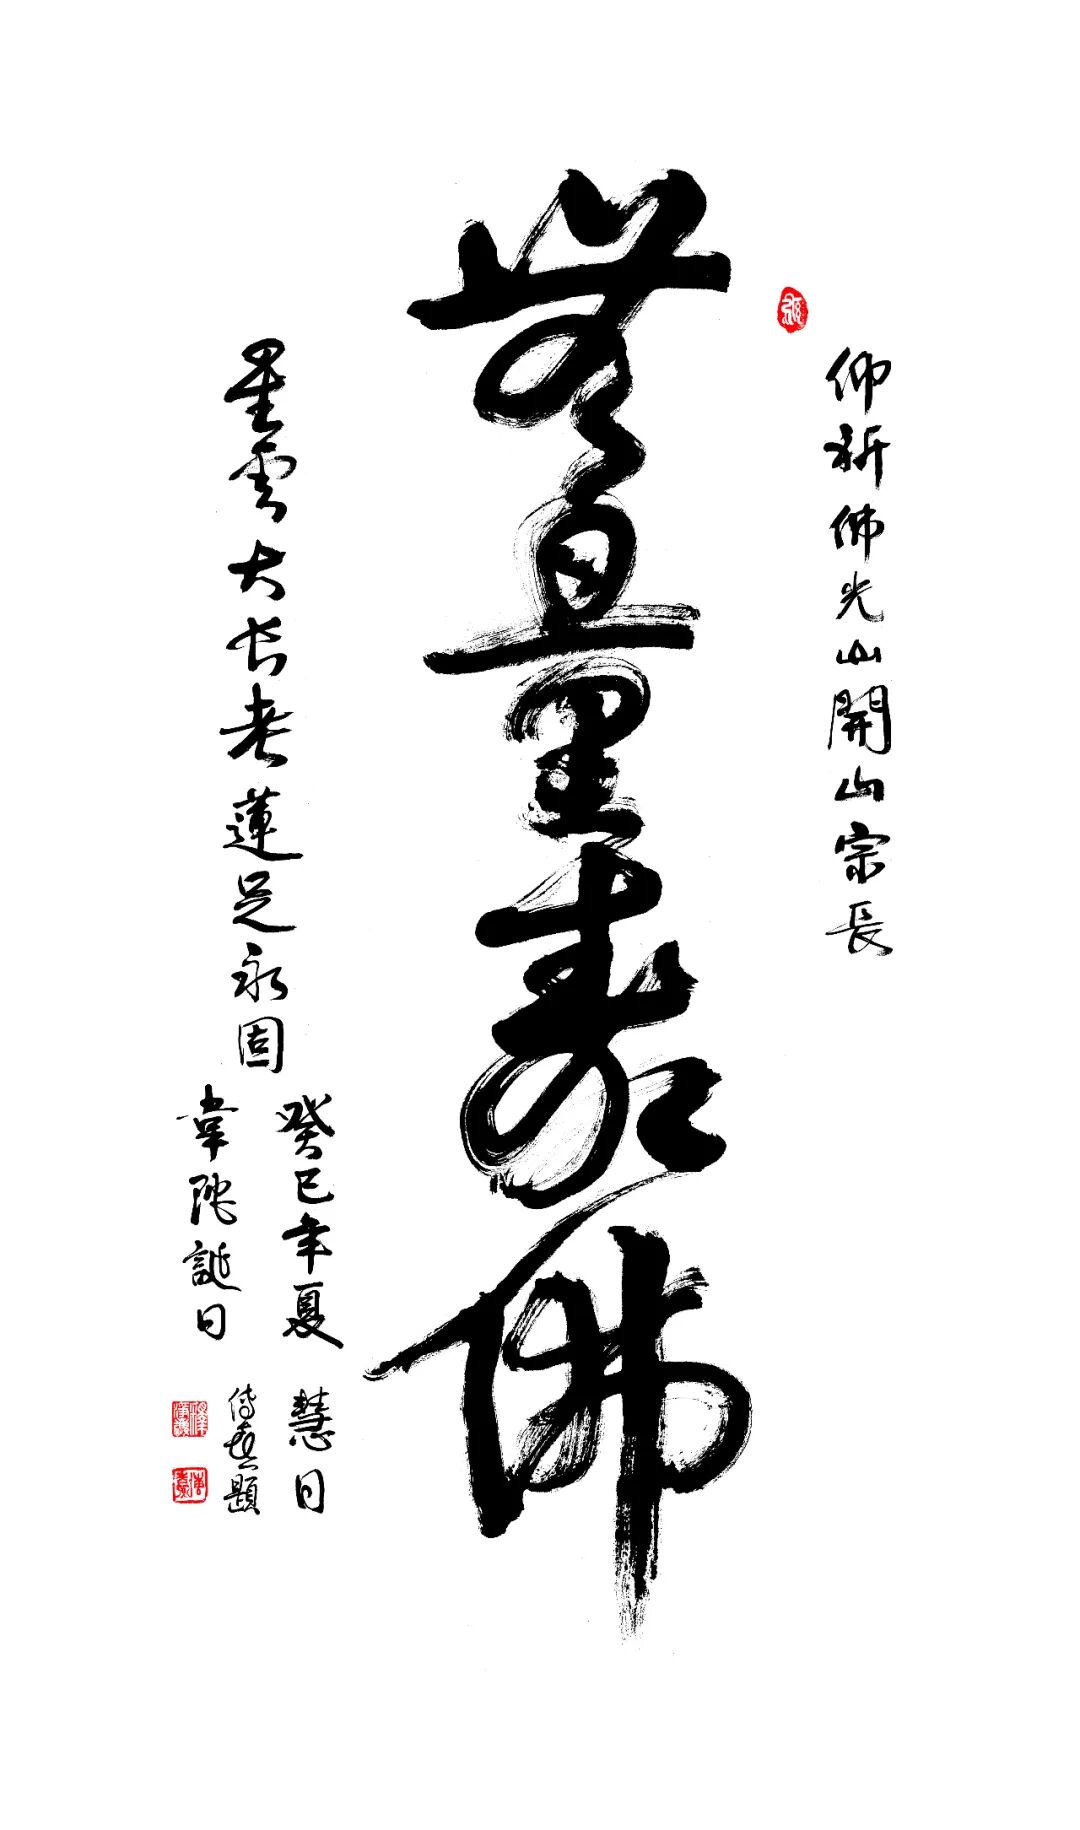 仰祈佛光山開山宗長
無量壽佛
星雲大長老蓮足永固
癸巳年夏
韋陀誕日
慧日
傳喜題